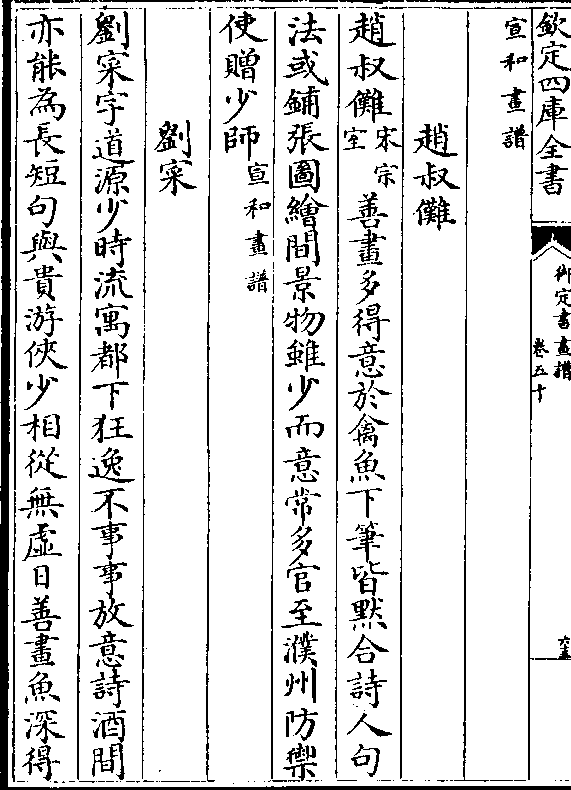 欽定四庫全書
御定書畫譜
卷五十
六十五
宣和畫譜
趙叔儺
趙叔儺宋宗室善畫多得意於禽魚下筆皆默合詩人句
法或鋪張圖繪間景物雖少而意常多官至濮州防禦
使贈少師宣和畫譜
劉寀
劉寀字道源少時流寓都下狂逸不事事放意詩酒間
亦能為長短句與貴游俠少相從無虛日善畫魚深得